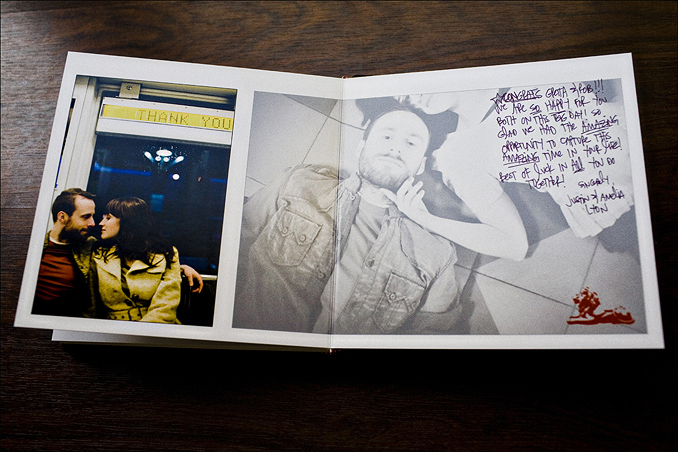 THANK YOU
CONGRATS GRETA & ROB!!!
WE ARE SO HAPPY FOR YOU
BOTH ON THIS BIG DAY! SO
GLAD WE HAD THE AMAZING
OPPORTUNITY TO CAPTURE THIS
AMAZING TIME IN YOUR LIFE!
BEST OF LUCK IN ALL YOU DO
TOGETHER!
SINCERELY
JUSTIN & AMELIA
LYON